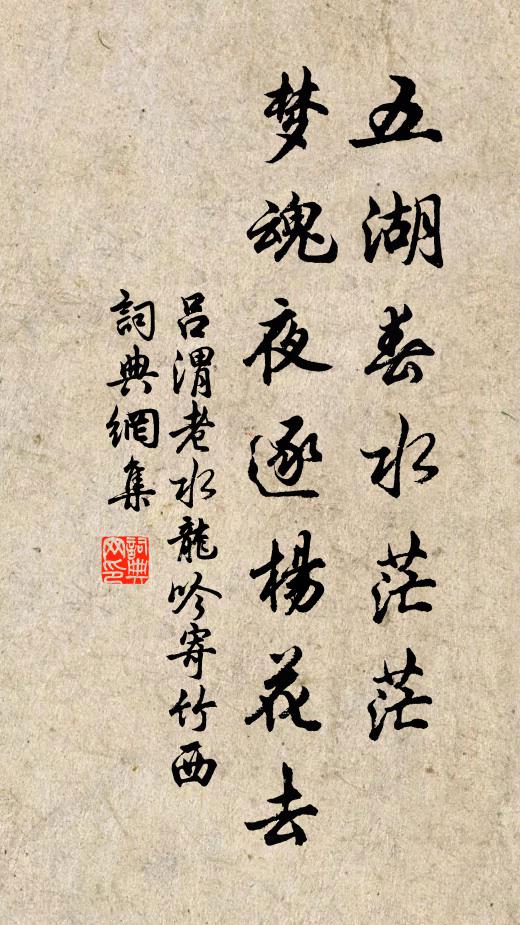 五湖春水茫茫
梦魂夜逐楊花去
呂渭老水龍吟寄竹西
詞典網集
詞典网印